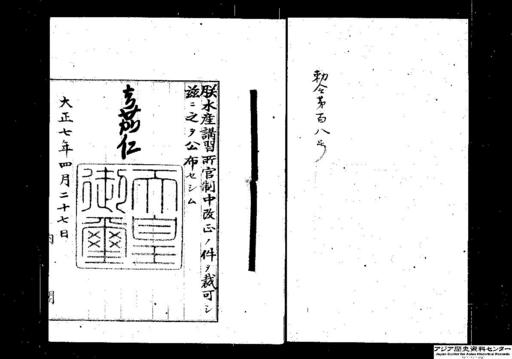 勅令第百八号
朕水産講習所官制中改正ノ件ヲ裁可シ
茲ニ之ヲ公布セシム
嘉仁
天皇御璽
大正七年四月二十七日
内閣
アジア歴史資料センター
Japan Center for Asian Historical Records